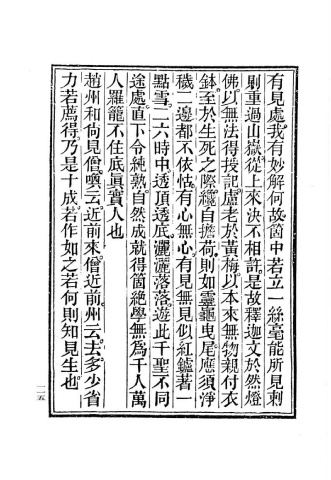 有見處我有妙解何故箇中若立一絲毫能所見刺
則重過山嶽從上來決不相許是故釋迦文於然燈
佛以無法得授記盧老於黃梅以本來無物親付衣
鉢至於生死之際纔自擔荷則如靈龜曳尾應須淨
穢二邊都不依怙有心無心有見無見似紅鑪著一
點雪二六時中透頂透底灑灑落落遊此千聖不同
途處直下令純熟自然成就得箇絕學無為千人萬
人羅籠不住底眞實人也
趙州和尙見僧喚云近前來僧近前州云去多少省
力若薦得乃是十成若作如之若何則知見生也
二五